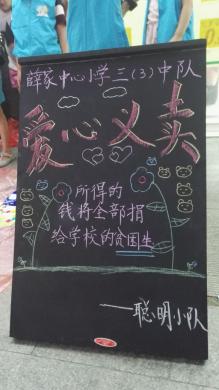 薛家中心小学三(3)中队
爱心义卖
所得的
钱将全部捐
给学校的贫困生
——聪明小队